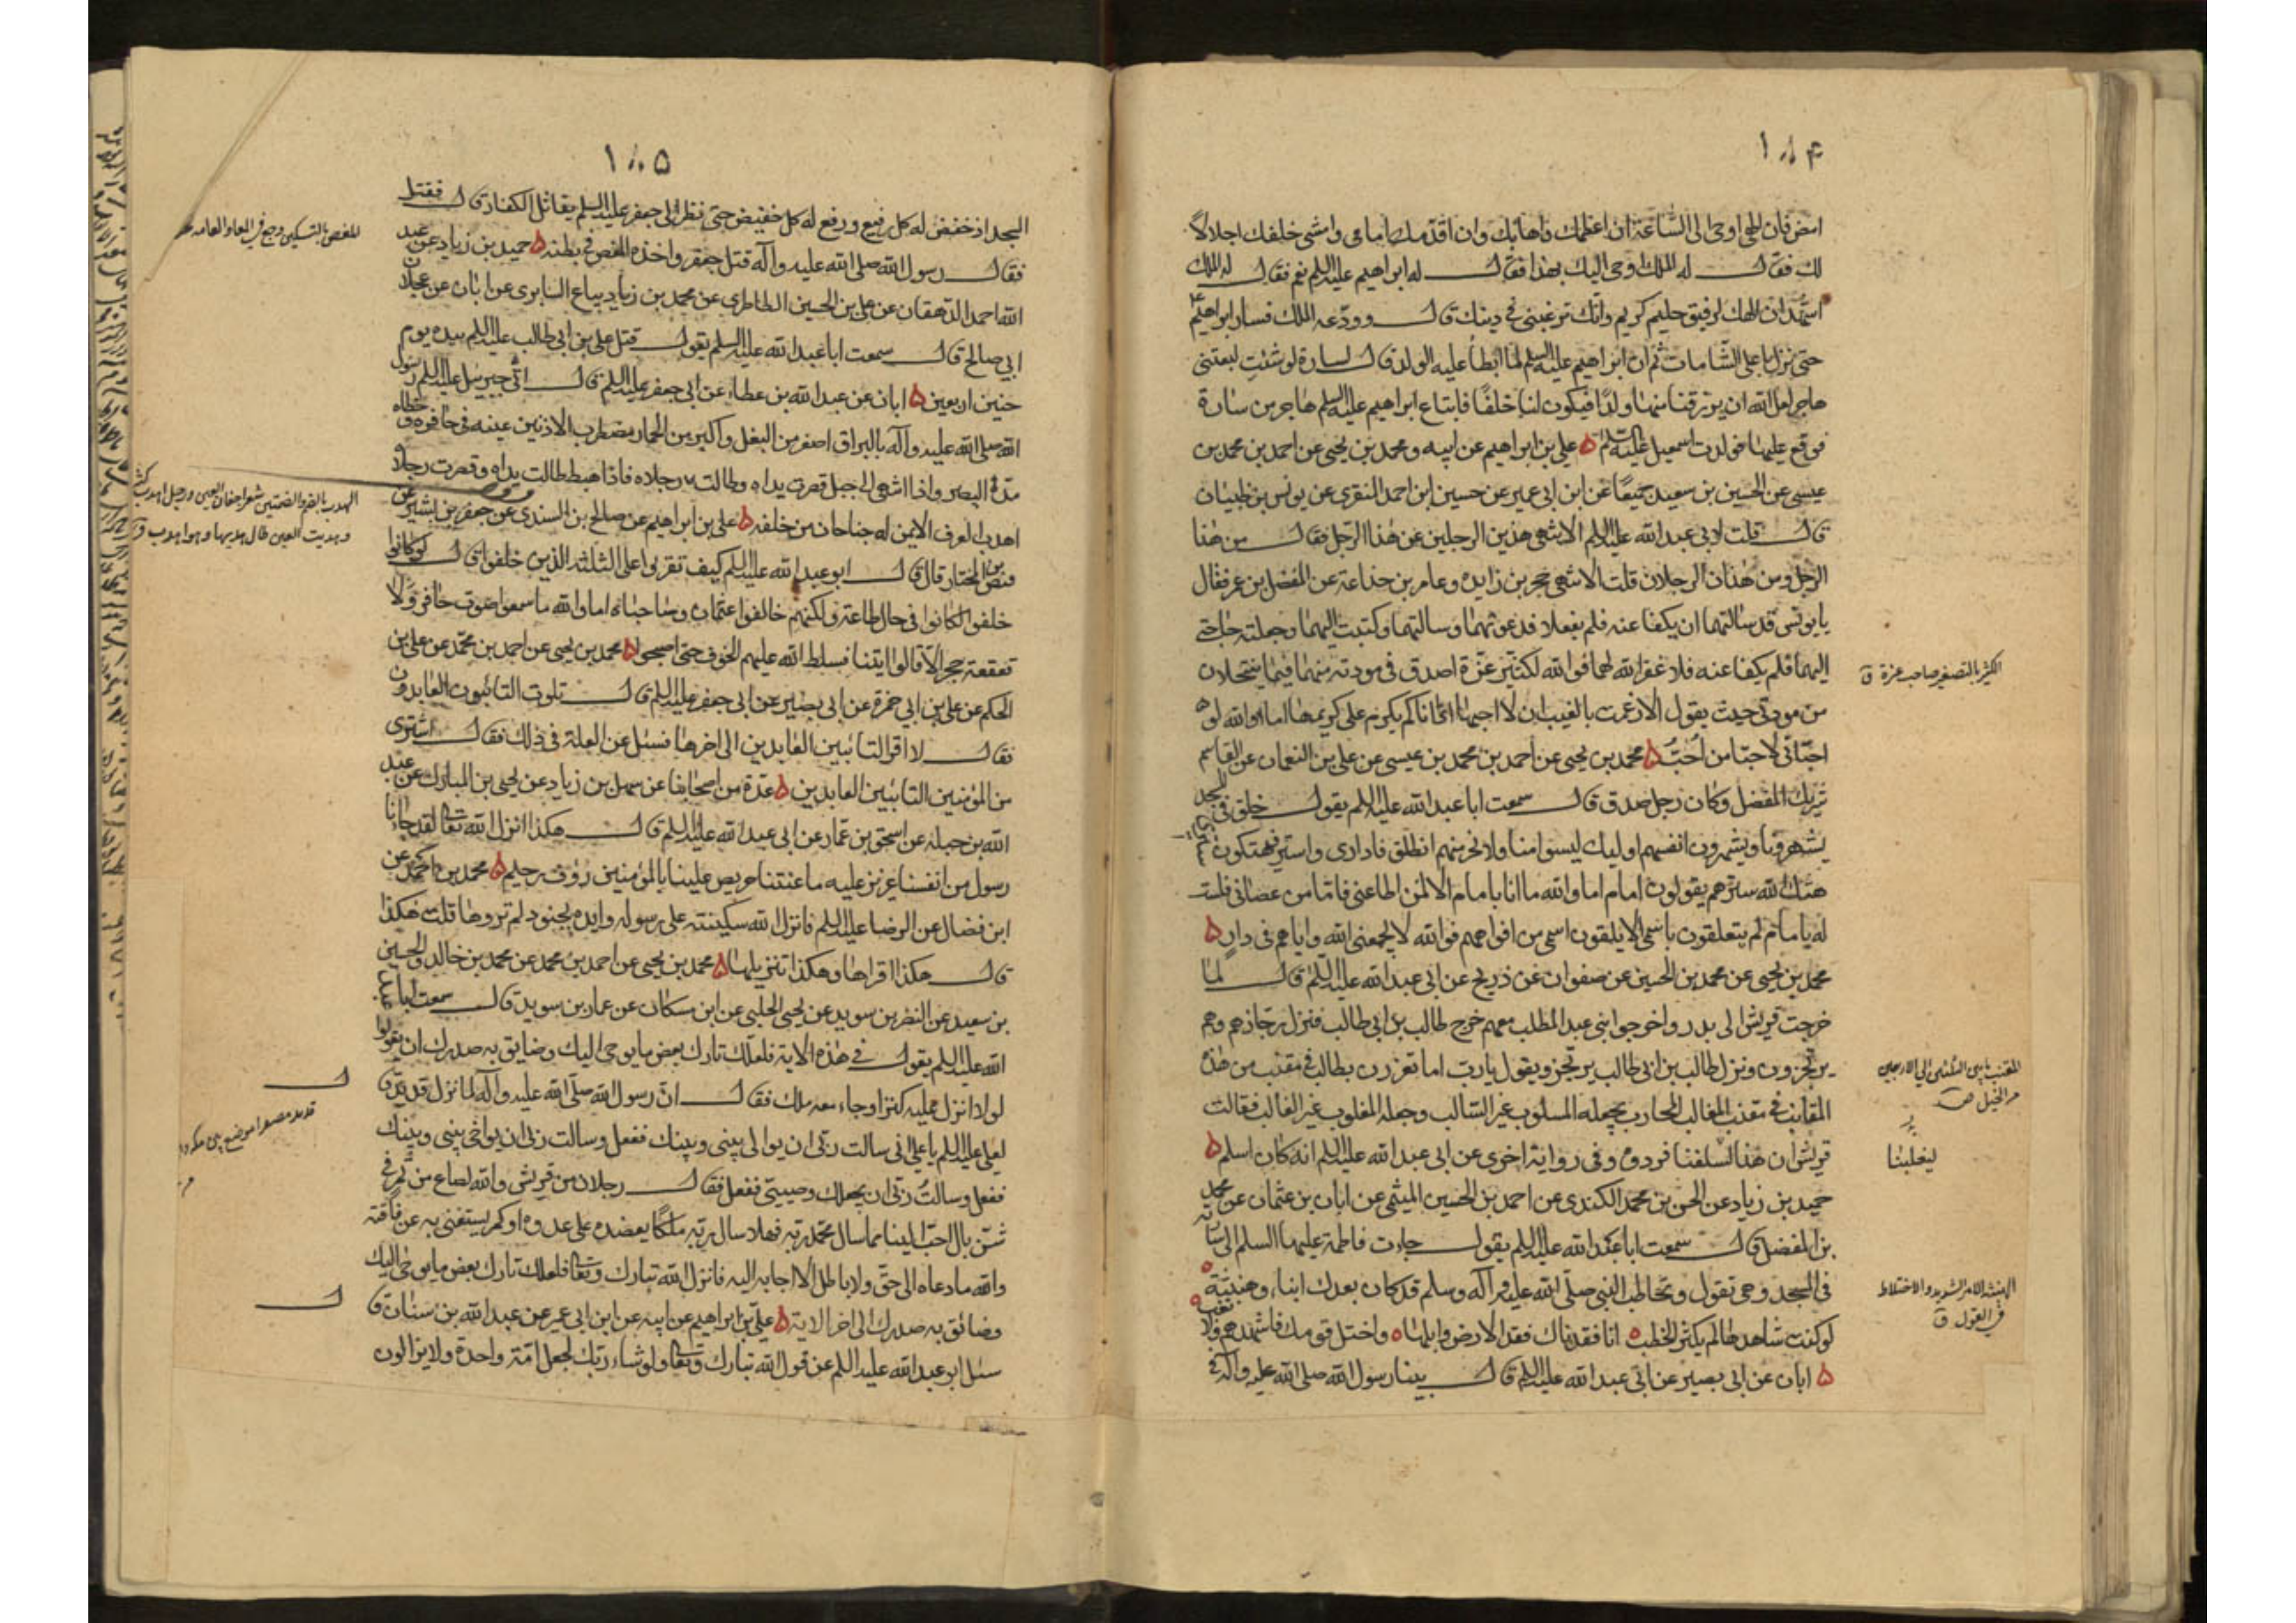 ١٨۴
امض فان الهی اوحی الی السّاعة ان اعظمك واهابك وان اقدّمك امامی وامشی خلفك اجلالاً
لك فقال له الملك اوحی الیك بهذا فقال له ابراهیم علیه السلم نعم فقال له الملك
اشهد ان الهك لرفیق حلیم کریم وانّك ترغبنی فی دینك قال وودّعه الملك فسار ابراهیم
حتی نزل باعلی الشّامات ثم ان ابراهیم علیه السلم لما ابطأ علیه الولد قال لسارة لو شئتِ لبعتنی
هاجر لعل الله ان یرزقنا منها ولدًا فیکون لنا خلفًا فابتاع ابراهیم علیه السلم هاجر من سارة
فوقع علیها فولدت اسمعیل علیه السلم ۵ علی بن ابراهیم عن ابیه و محمد بن یحیی عن احمد بن محمد بن
عیسی عن الحسین بن سعید جمیعًا عن ابن ابی عمیر عن حسین ابن احمد المنقری عن یونس بن ظبیان
قال قلت لابی عبدالله علیه السلم الا تنهی هذین الرجلین عن هذا الرّجل فقال من هذا
الرجل ومن هذان الرجلان قلت الا تنهی حجر بن زایده وعامر بن جذاعة عن المفضل بن عمر فقال
یا یونس قد سالتهما ان یکفا عنه فلم یفعلا فدعوتهما وسالتهما وکتبت الیهما وجعلته حاجتی
الیهما فلم یکفا عنه فلا غفر الله لهما فوالله لکثیّر عزّة اصدق فی مودته منهما فیما ینتحلان
من مودتی حیث یقول الا زعمت بالغیب ان لا احبها اذا انا لم یکرم علی کریمها اما والله لو
احبّانی لاحبا من احبّ ۵ محمد بن یحیی عن احمد بن محمد بن عیسی عن علی بن النعمان عن القاسم
شریك المفضل وکان رجل صدق قال سمعت ابا عبدالله علیه السلم یقول خلق فی المسجد
یشهرونا ویشهرون انفسهم اولیك لیسوا منا ولا نحن منهم انطلق فاداری واستر فیهتکون ستری
هتك الله سترهم یقولون امام اما والله ما انا بامام الا لمن اطاعنی فاما من عصانی فلست
له بامام لم یتعلقون باسمی الا یلقون اسمی من افواههم فوالله لا یجمعنی الله وایاهم فی دارٍ ۵
محمد بن یحیی عن محمد بن الحسین عن صفوان عن ذریح عن ابی عبدالله علیه السلم قال لما
خرجت قریش الی بدر واخرجوا بنی عبد المطلب معهم خرج طالب بن ابی طالب فنزل رجازهم وهم
یرتجزون ونزل طالب بن ابی طالب یرتجز ویقول یا رب اما تغززن بطالب فی مقنب من هذه
المقانب فی مقنب المغالب المحارب بجعله المسلوب غیر السّالب وجعله المغلوب غیر الغالب فقالت
قریش ان هذا لسلفنا فردوه وفی روایة اخری عن ابی عبدالله علیه السلم انه کان اسلم ۵
حمید بن زیاد عن الحسن بن محمد الکندی عن احمد بن الحسین المیثمی عن ابان بن عثمان عن محمد
بن المفضل قال سمعت ابا عبدالله علیه السلم یقول جاءت فاطمة علیها السلم الی ساریة
فی المسجد وهی تقول وتخاطب النبی صلّی الله علیه وآله وسلم قد کان بعدك انباء وهنبثة
لو کنت شاهدها لم یکثر الخطب انا فقدناك فقد الارض وابلها واختل قومك فاشهدهم ولا تغب
۵ ابان عن ابی بصیر عن ابی عبدالله علیه السلم قال بینا رسول الله صلی الله علیه وآله فی
الکثیر بالتصغیر صاحب عزة ق
المقنب ما بین الثلثین الی الاربعین
من الخیل ص
لیغلبنا
الهنبثة الامر الشدید والاختلاط
فی القول ق
١٨۵
المسجد اذ خفض له کل رفیع ورفع له کل خفیض حتی نظر الی جعفر علیه السلم یقاتل الکفار قال فقتل
فقال رسول الله صلی الله علیه وآله قتل جعفر واخذه المغص فی بطنه ۵ حمید بن زیاد عن عبید
الله احمد الدهقان عن علی بن الحسین الطاطری عن محمد بن زیاد بیاع السابری عن ابان عن عجلان
ابی صالح قال سمعت ابا عبدالله علیه السلم یقول قتل علی بن ابی طالب علیه السلم بیده یوم
حنین اربعین ۵ ابان عن عبدالله بن عطاء عن ابی جعفر علیه السلم قال اتی جبرییل علیه السلم رسول
الله صلی الله علیه وآله بالبراق اصغر من البغل واکبر من الحمار مضطرب الاذنین عینه فی حافره وخطاه
مدّ البصر واذا انتهی الی جبل قصرت یداه وطالت رجلاه فاذا هبط طالت یداه وقصرت رجلاه
اهدب العرف الایمن له جناحان من خلفه ۵ علی بن ابراهیم عن صالح بن السندی عن جعفر بن بشیر عن
فیض بن المختار قال قال ابو عبدالله علیه السلم کیف تقرأ وعلی الثلثة الذین خلفوا قال لو کانوا
خلفوا لکانوا فی حال طاعة ولکنهم خالفوا عثمان وصاحباه اما والله ما سمعوا صوت حافر ولا
قعقعة حجر الا قالوا اتینا فسلط الله علیهم الخوف حتی اصبحوا ۵ محمد بن یحیی عن احمد بن محمد عن علی بن
الحکم عن علی بن ابی حمزة عن ابی بصیر عن ابی جعفر علیه السلم قال تلوت التائبون العابدون
فقال لا اقرا التائبین العابدین الی اخرها فسئل عن العلة فی ذلك فقال اشتری
من المؤمنین التائبین العابدین ۵ عدّة من اصحابنا عن سهل بن زیاد عن یحیی بن المبارك عن عبد
الله بن جبله عن اسحق بن عمار عن ابی عبدالله علیه السلم قال هکذا انزل الله تعالی لقد جاءنا
رسول من انفسنا عزیز علیه ما عنتنا حریص علینا بالمؤمنین رؤف رحیم ۵ محمد بن احمد عن
ابن فضال عن الرضا علیه السلم فانزل الله سکینته علی رسوله وایده بجنود لم تروها قلت هکذا
قال هکذا اقراها وهکذا تنزیلها ۵ محمد بن یحیی عن احمد بن محمد عن محمد بن خالد والحسین
بن سعید عن النضر بن سوید عن یحیی الحلبی عن ابن مسکان عن عمار بن سوید قال سمعت ابا عبد
الله علیه السلم یقول فی هذه الایة فلعلّك تارك بعض ما یوحی الیك وضایق به صدرك ان یقولوا
لولا انزل علیه کنز او جاء معه ملك فقال انّ رسول الله صلّی الله علیه وآله لما نزل قدید قال
لعلی علیه السلم یا علی انی سالت ربّی ان یوالی بینی وبینك ففعل وسالت ربّی ان یواخی بینی وبینك
ففعل وسالتُ ربّی ان یجعلك وصییی ففعل فقال رجلان من قریش والله لصاع من تمر فی
شنّ بال احبّ الینا مما سال محمّد ربه فهلا سال ربه ملکًا یعضده علی عدوه او کنز یستغنی به عن فاقته
والله ما دعاه الی حقّ ولا باطل الا اجابه الیه فانزل الله تبارك وتعالی فلعلك تارك بعض ما یوحی الیك
وضائق به صدرك الی اخر الایة ۵ علیّ بن ابراهیم عن ابیه عن ابن ابی عمیر عن عبدالله بن سنان قال
سئل ابو عبدالله علیه السلم عن قول الله تبارك وتعالی ولو شاء ربّك لجعل امّة واحدة ولا یزالون
المغص بالتسکین وجع فی المعا والعامه
الهدب بالضم وبالضمتین شعر اجفان العین ورجل اهدب
وهدبت العین طال هدبها وهو اهدب ق
قدید مصغرا موضع بین مکه